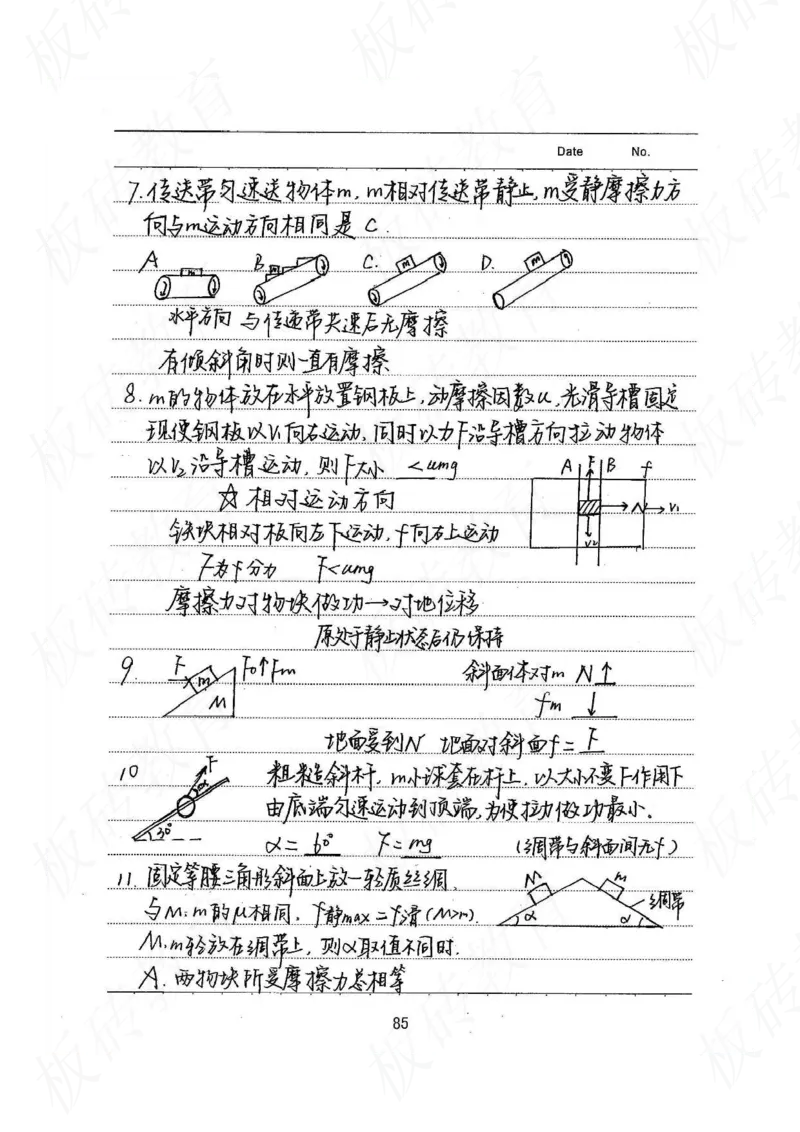 Date No.
7.传送带匀速送物体m,m相对传送带静止,m受静摩擦力方
向与m运动方向相同是 C.
A B. C. D.
m m m m
水平方向 与传送带共速后无摩擦
有倾斜角时则一直有摩擦
8.m的物体放在水平放置钢板上,动摩擦因数u,光滑导槽固定
现使钢板以V₁向右运动,同时以力F沿导槽方向拉动物体
以V₂沿导槽运动,则F大小 <umg
A F B f
N V₁
V2
☆相对运动方向
铁块相对板向左下运动,f向右上运动
F为f分力 F<umg
摩擦力对物块做功→对地位移
原处于静止状态后仍保持
9. F m M F0↑Fm 斜面体对m N↑
fm ↓
地面受到N 地面对斜面f=F
10 粗糙斜杆,m小球套在杆上,以大小不变F作用下
F α 30°
由底端匀速运动到顶端,为使拉力做功最小.
α=60° F=mg (绸带与斜面间无f)
11.固定等腰三角形斜面上放一轻质丝绸.
与M.m的μ相同,f静max=f滑(M>m).
M m 绸带 α α
M.m轻放在绸带上,则α取值不同时.
A.两物块所受摩擦力总相等
85
板砖教育